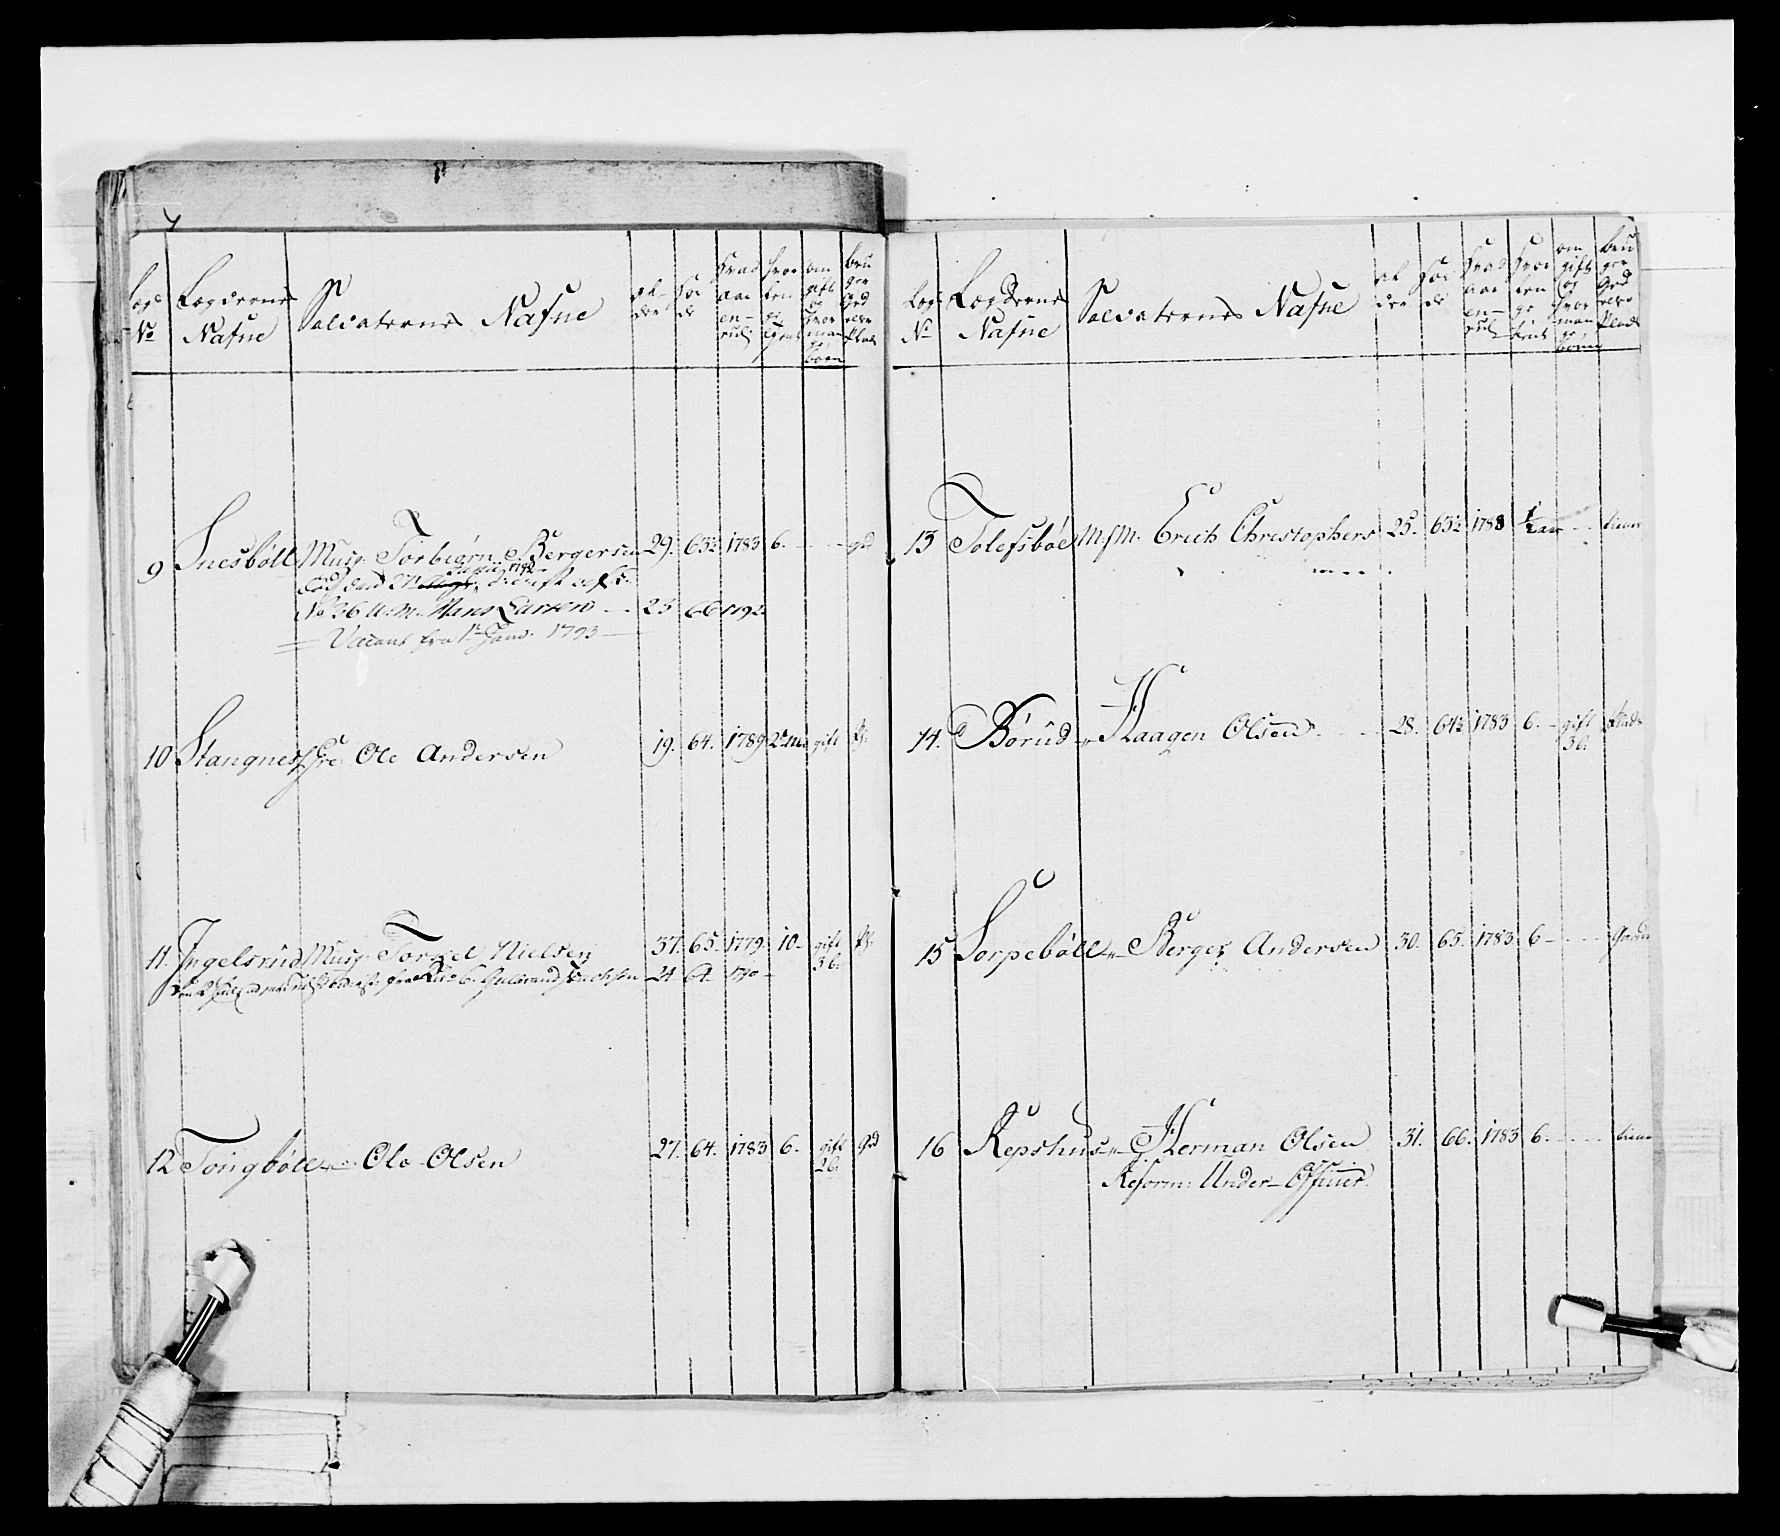 Lægd No | Lægdernes Nafne | Soldaternes Nafne | al der | høi de | hvad aar en- rul | hvor len ge tjent | om gift og hvor man ge børn | bru ger Grd eller Plads
9 Snesböll Musq. Torbiørn Bergersen 29. 63½ 1783 6. - - - grd
No 36 U. M. Hans Larsen - - 23 66 1792
= Vacant fra 1te Janv. 1793 —
10 Stangnes Gre. Ole Andersen 19. 64. 1789 gift Pl.
11. Ingelsrud Musq. Torkel Nielsen 37. 65. 1779 10 - gift 3 b. Pl.
Gulbrand 24 64 1790 -
12 Tongböll - " - Ole Olsen 27. 64. 1783 6. gift 2 b. grd
Lægd No | Lægdernes Nafne | Soldaternes Nafne | al der | høi de | hvad aar en- rul | hvor len ge tient | om gift og hvor man ge børn | bru ger Grd eller Plads
13 Tolefsböl M.f.M. Erich Christophers 25. 63½ 1788 ½ aar - - tiener
14. Börud - " - Haagen Olsen - - 28. 64½ 1783 6. - gift 3 b. Plads
15 Sorpeböll - " - Berger Andersen 30. 65. 1783 6 - - - - Gaard
16 Kepshus - " - Herman Olsen 31. 66. 1783 6. - - - tiener
Reform: Under-Officier.